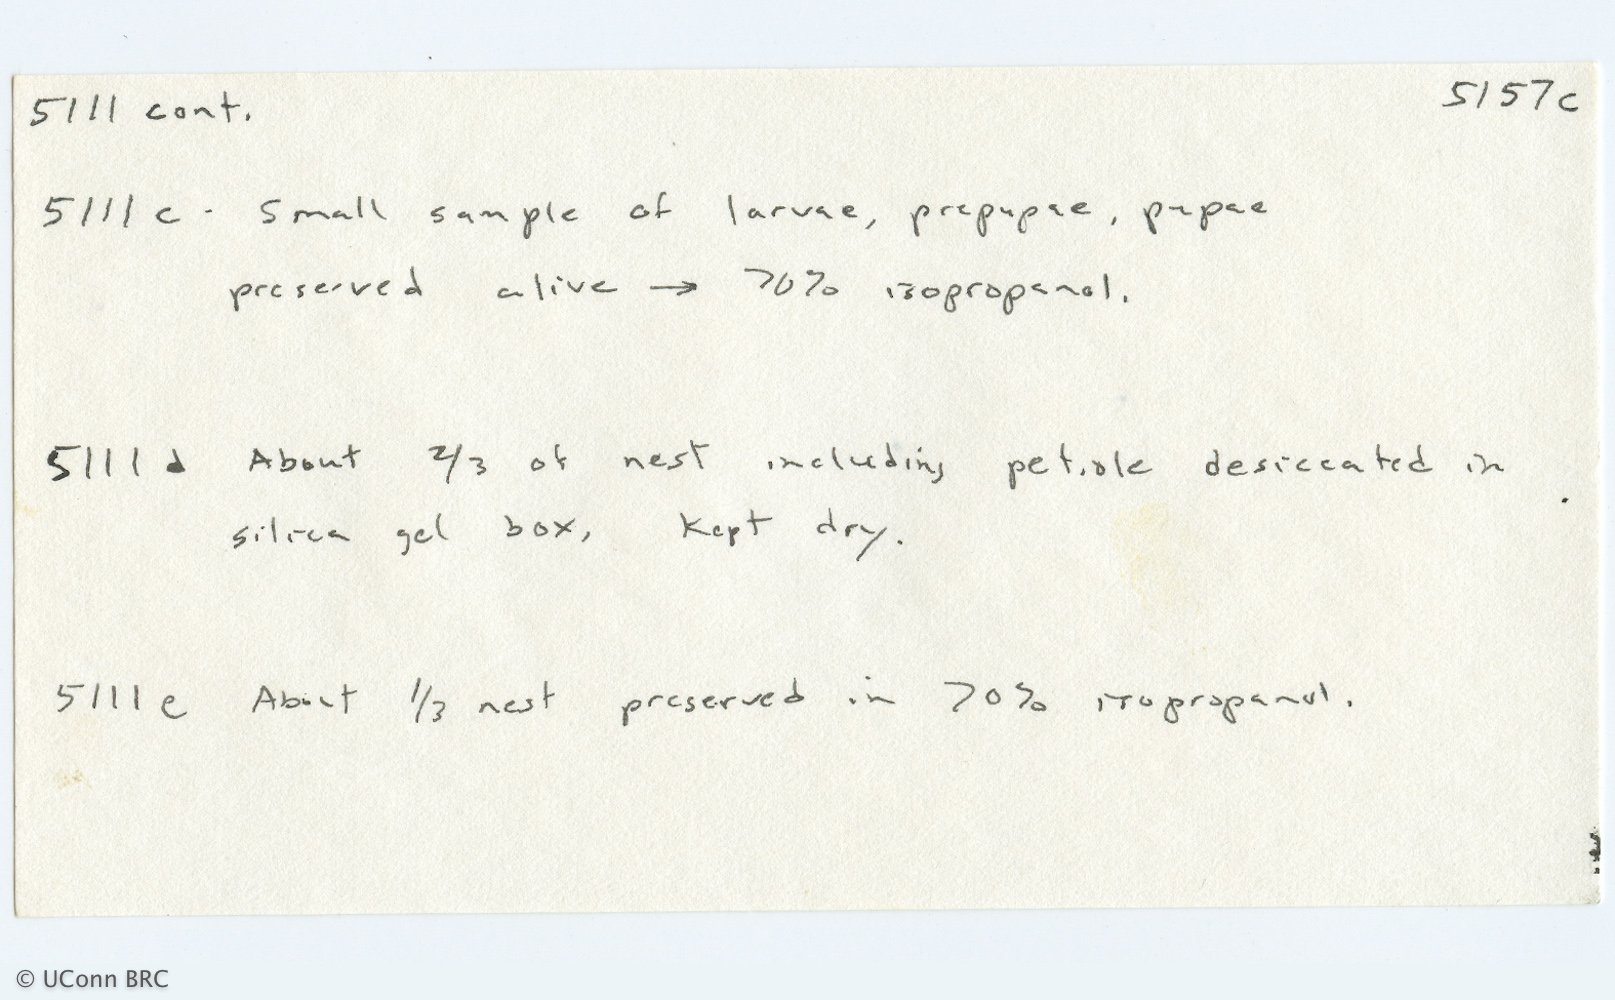 5111 cont.
5157c
5111 c - Small sample of larvae, prepupae, pupae
preserved alive → 70% isopropanol.
5111 d About 2/3 of nest including petiole desiccated in
silica gel box, kept dry.
5111 e About 1/3 nest preserved in 70% isopropanol.
© UConn BRC